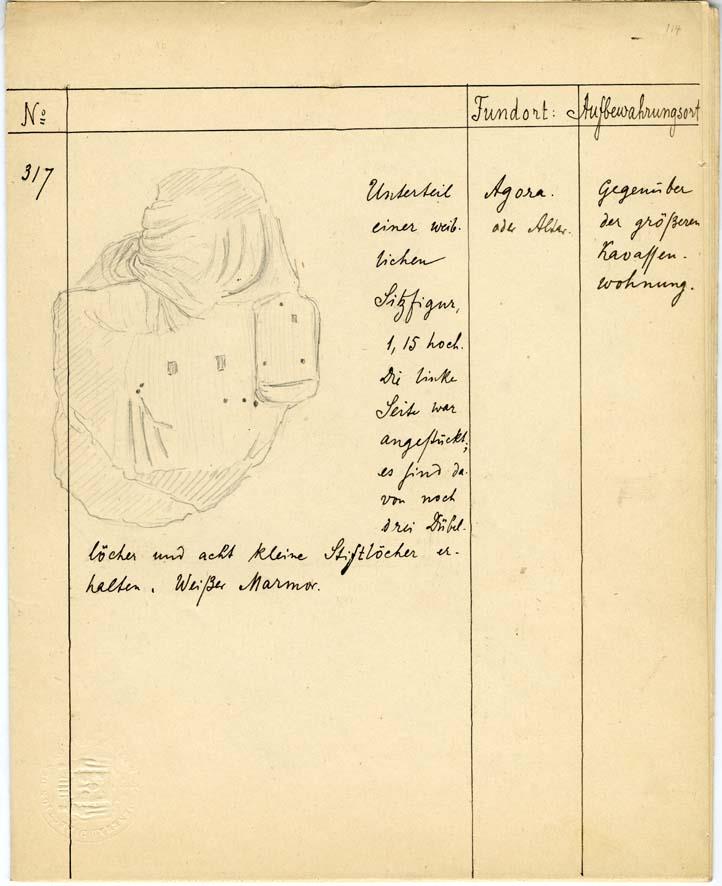 114
No Fundort: Aufbewahrungsort
317
Unterteil
einer weib-
lichen
Sitzfigur,
1,15 hoch.
Die linke
Seite war
angestückt;
es sind da-
von noch
drei Dübel-
löcher und acht kleine Stiftlöcher er-
halten. Weißer Marmor.
Agora.
oder Altar.
Gegenüber
der größeren
Kavassen-
wohnung.